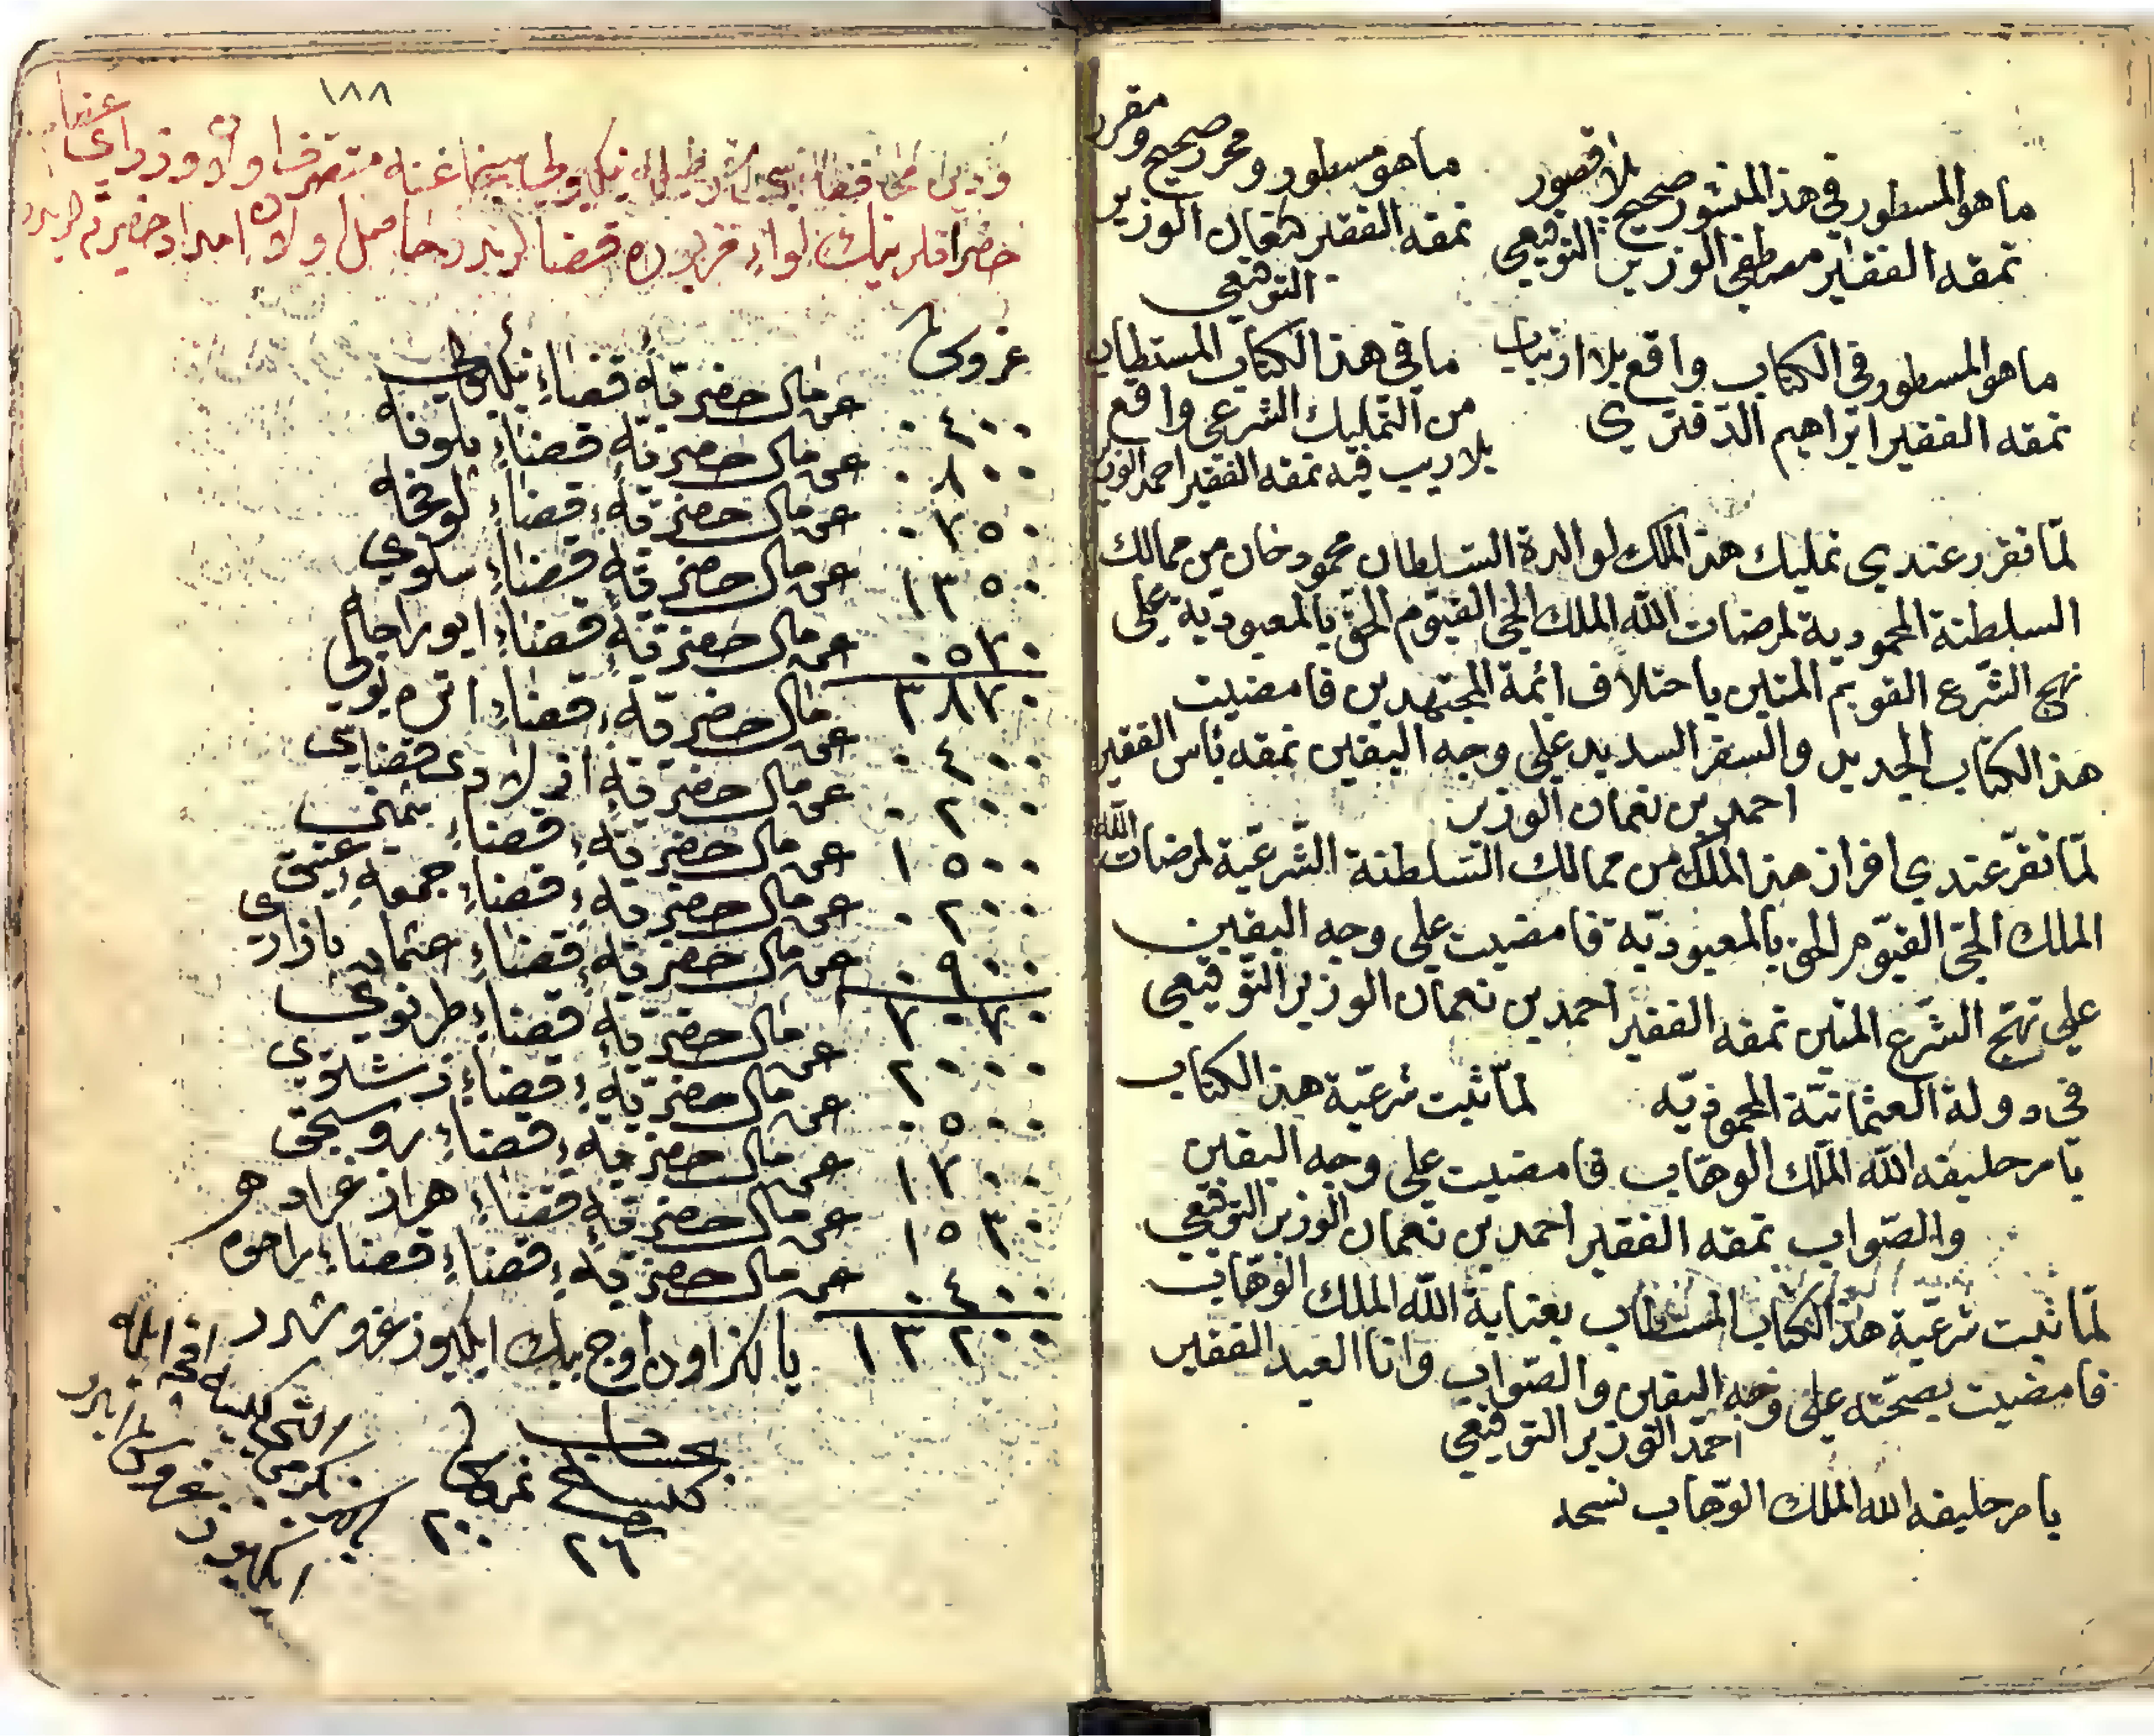 ما هو المسطور في هذا المنشور صحيح بلا قصور
نمقه الفقير مصطفى الوزير التوقيعي
ما هو مسطور ومحرر صحيح ومقرر
نمقه الفقير نعمان الوزير
التوقيعي
ما هو المسطور في الكتاب واقع بلا ارتياب
نمقه الفقير ابراهيم الدفتري
ما في هذا الكتاب المستطاب
من التمليك الشرعي واقع
بلا ريب فيه نمقه الفقير احمد الوزير
لما تقرر عندي تمليك هذا الملك لوالدة السلطان محمود خان من ممالك
السلطنة المحمودية لمرضات الله الملك الحي القيوم الحق بالمعبودية على
نهج الشرع القويم المتين باختلاف ائمة المجتهدين فامضيت
هذا الكتاب الجديد والسفر السديد على وجه اليقين نمقه بأس الفقير
احمد بن نعمان الوزير
لما تقرر عندي افراز هذا الملك من ممالك السلطنة الشرعية لمرضات الله
الملك الحي القيوم الحق بالمعبودية فامضيت على وجه اليقين
على نهج الشرع المتين نمقه الفقير احمد بن نعمان الوزير التوقيعي
في دولة العثمانية المحمودية لما ثبت شرعية هذا الكتاب
بامر خليفه الله الملك الوهاب فامضيت على وجه اليقين
والصواب نمقه الفقير احمد بن نعمان الوزير التوقيعي
لما ثبت شرعية هذا الكتاب المستطاب بعناية الله الملك الوهاب
فامضيت بصحته على وجه اليقين والصواب وانا العبد الفقير
احمد الوزير التوقيعي
بامر خليفه الله الملك الوهاب نسخه
١٨٨
غروش
٠٤٠٠ عن مال حضريه قضاء نيكبولي
٠٨٠٠ عن مال حضريه قضاء پلونه
٠٧٥٠ عن مال حضريه قضاء لوفچه
١٣٥٠ عن مال حضريه قضاء سلوي
٠٥٧٠ عن مال حضريه قضاء ايوراجالي
٣٨٧٠
٠٤٠٠ عن مال حضريه قضاء اتره بولي
٠٢٠٠ عن مال حضريه ازلادي قضايى
١٥٠٠ عن مال حضريه قضاء شمني
٠٢٠٠ عن مال حضريه قضاء جمعه عتيق
٠٩٠٠ عن مال حضريه قضاء عثمان بازاري
٧٠٧٠
٢٠٠٠ عن مال حضريه قضاء طرنوي
٠٥٠٠ عن مال حضريه قضاء زشتوي
١٧٠٠ عن مال حضريه قضاء روسجق
١٥٣٠ عن مال حضريه قضاء هزارغراد
٠٤٠٠ عن مال حضريه قضاء قضاء راحوه
١٣٢٠٠ يالكز اون اوچ بيك ايكيوز غروشدر
بحساب
كيسه
٢٦
غروش
٢٠٠